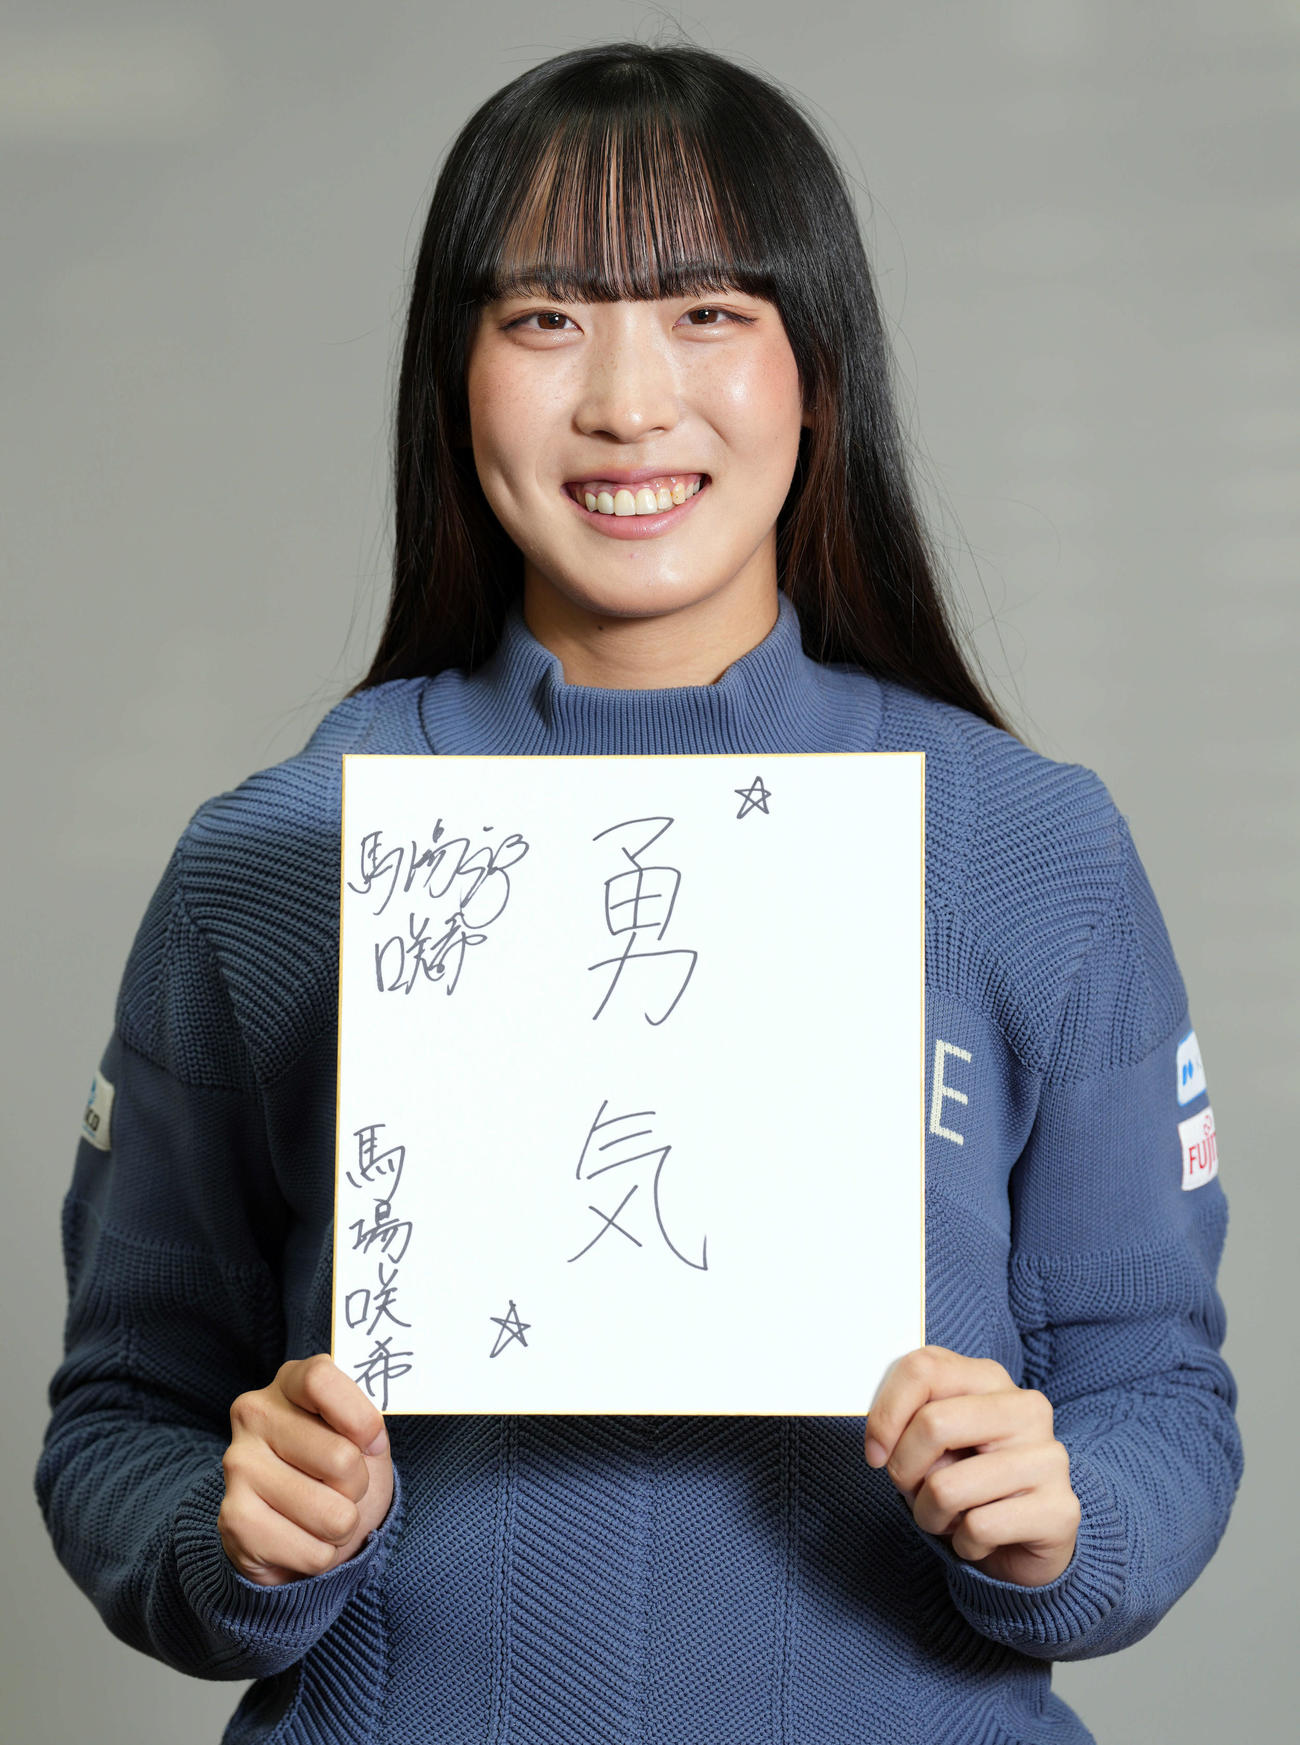 勇気
馬場咲希
馬場咲希
E
FUJI